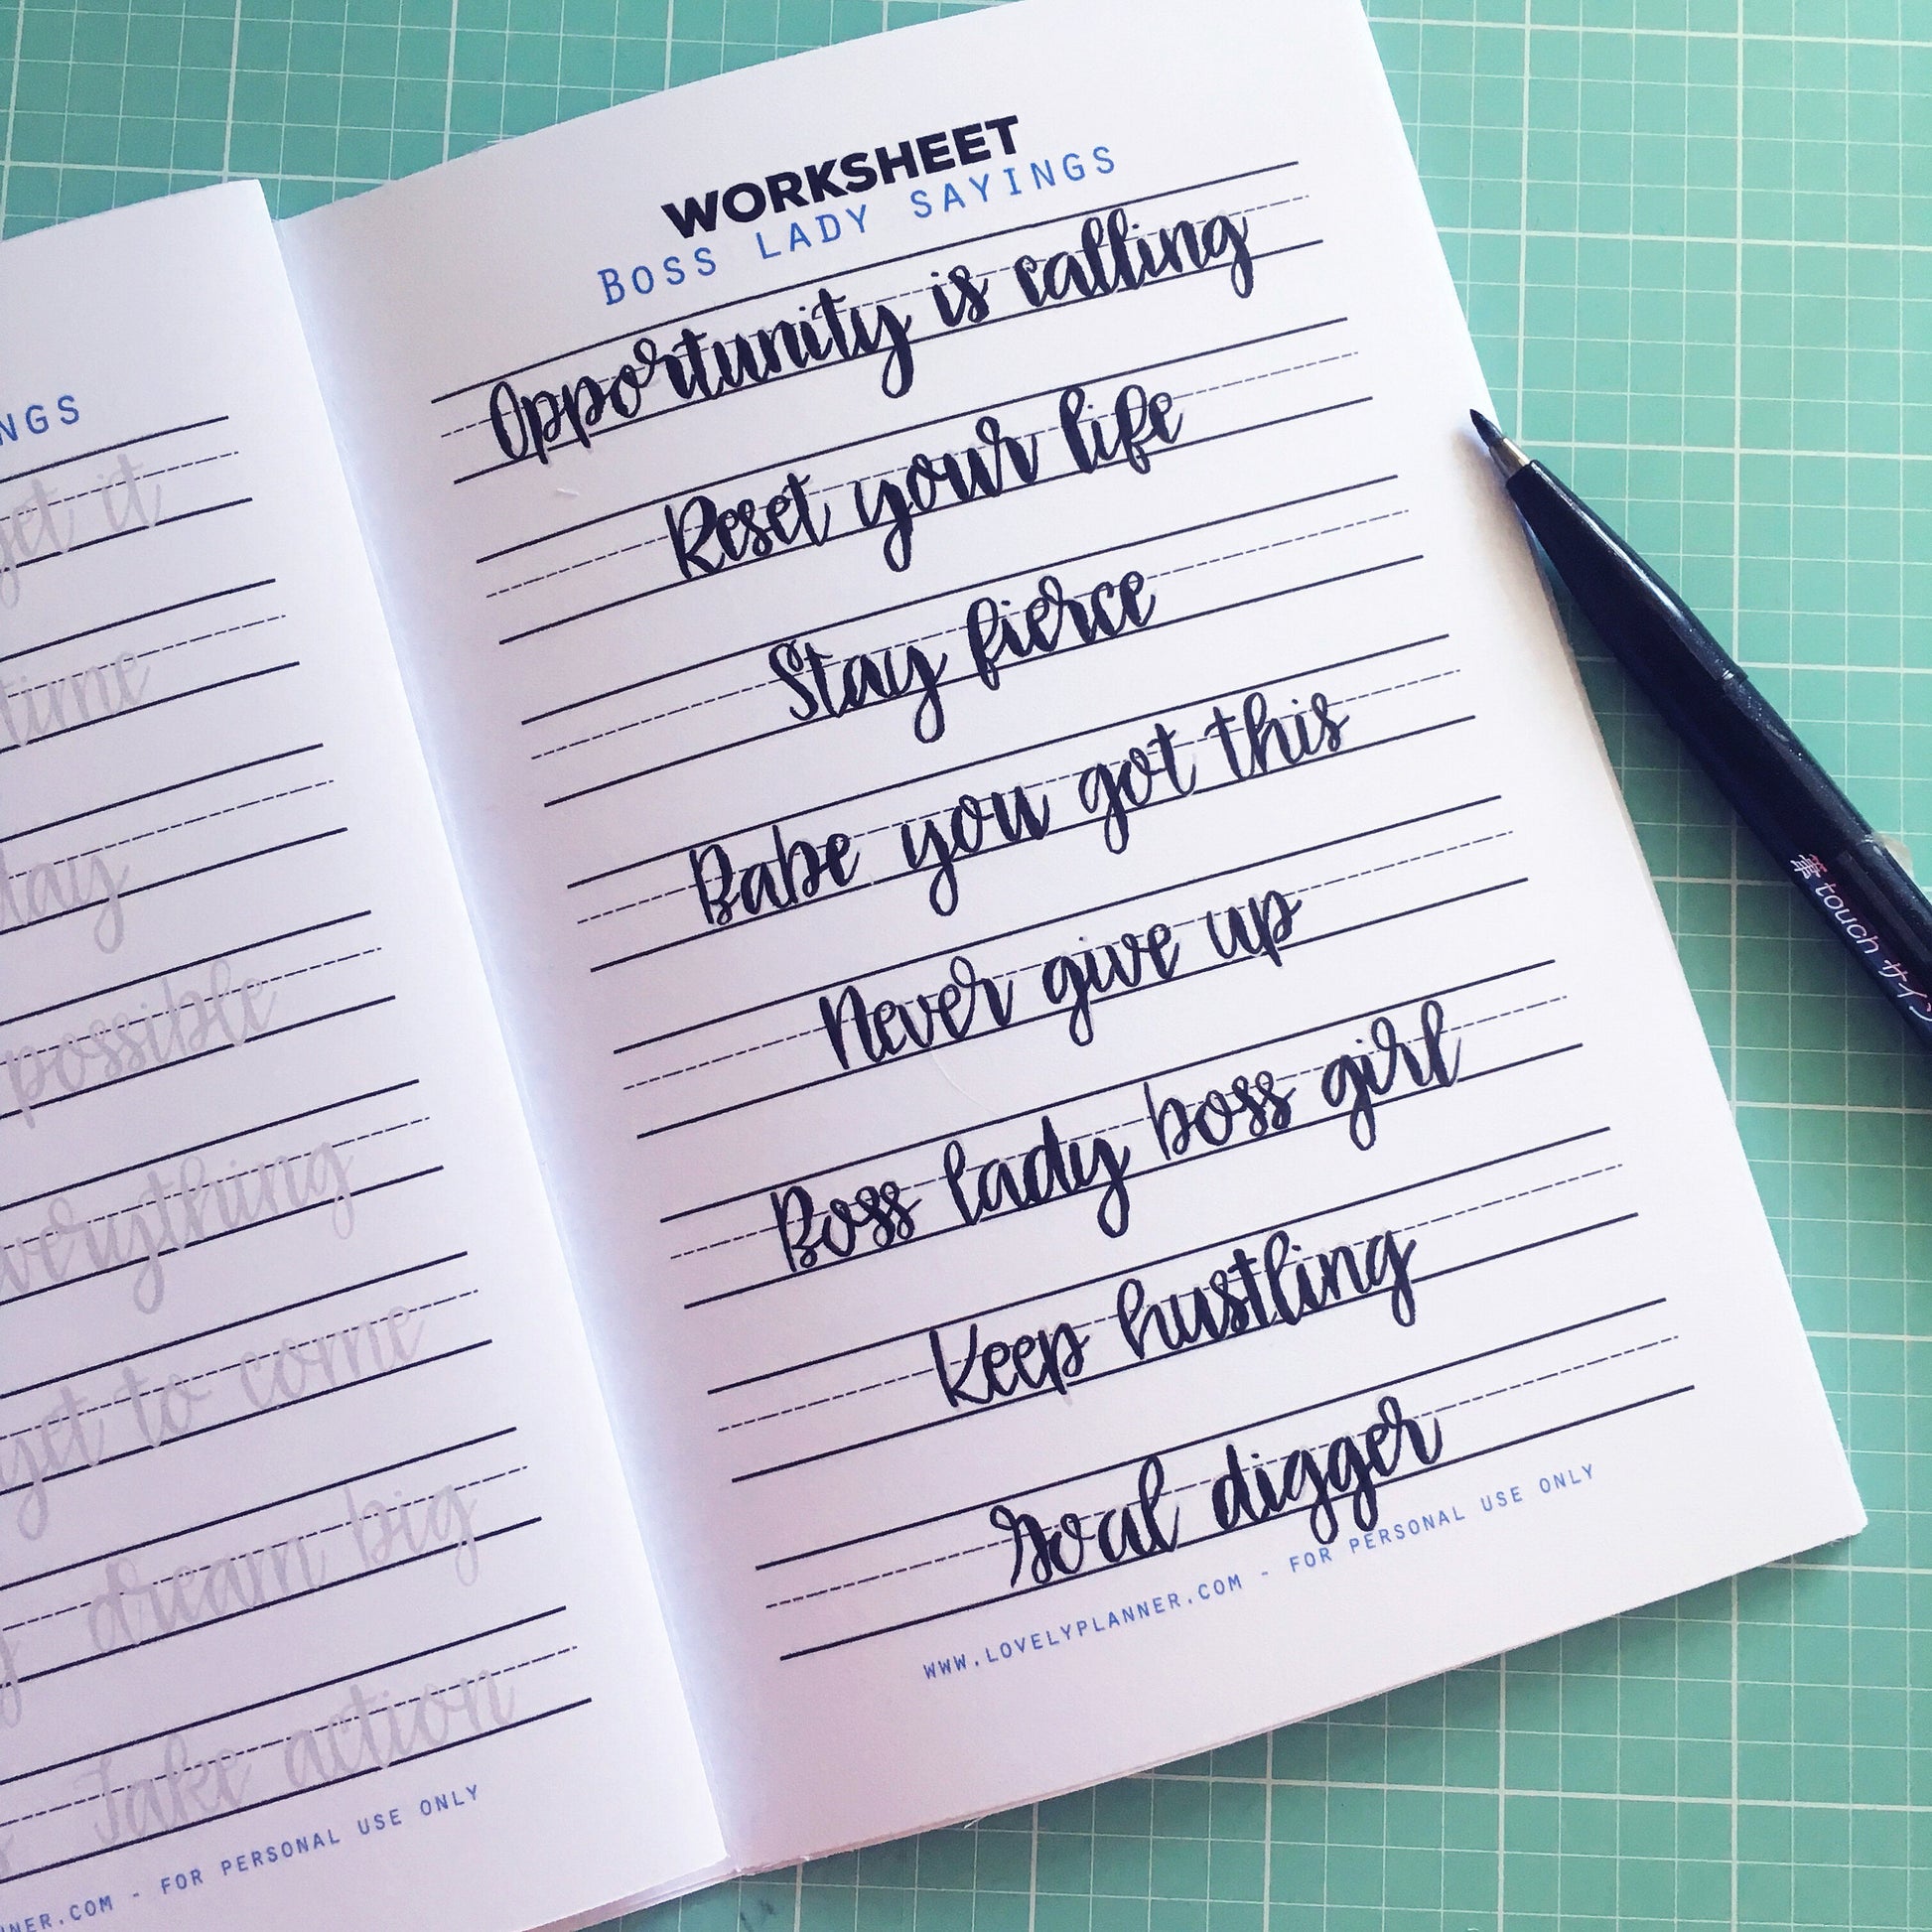 NGS
get it
time
day
possible
verything
yet to come
dream big
Take action
NER.COM - FOR PERSONAL USE ONLY
WORKSHEET
BOSS LADY SAYINGS
Opportunity is calling
Reset your life
Stay fierce
Babe you got this
Never give up
Boss lady boss girl
Keep hustling
Goal digger
WWW.LOVELYPLANNER.COM - FOR PERSONAL USE ONLY
筆touch サイン